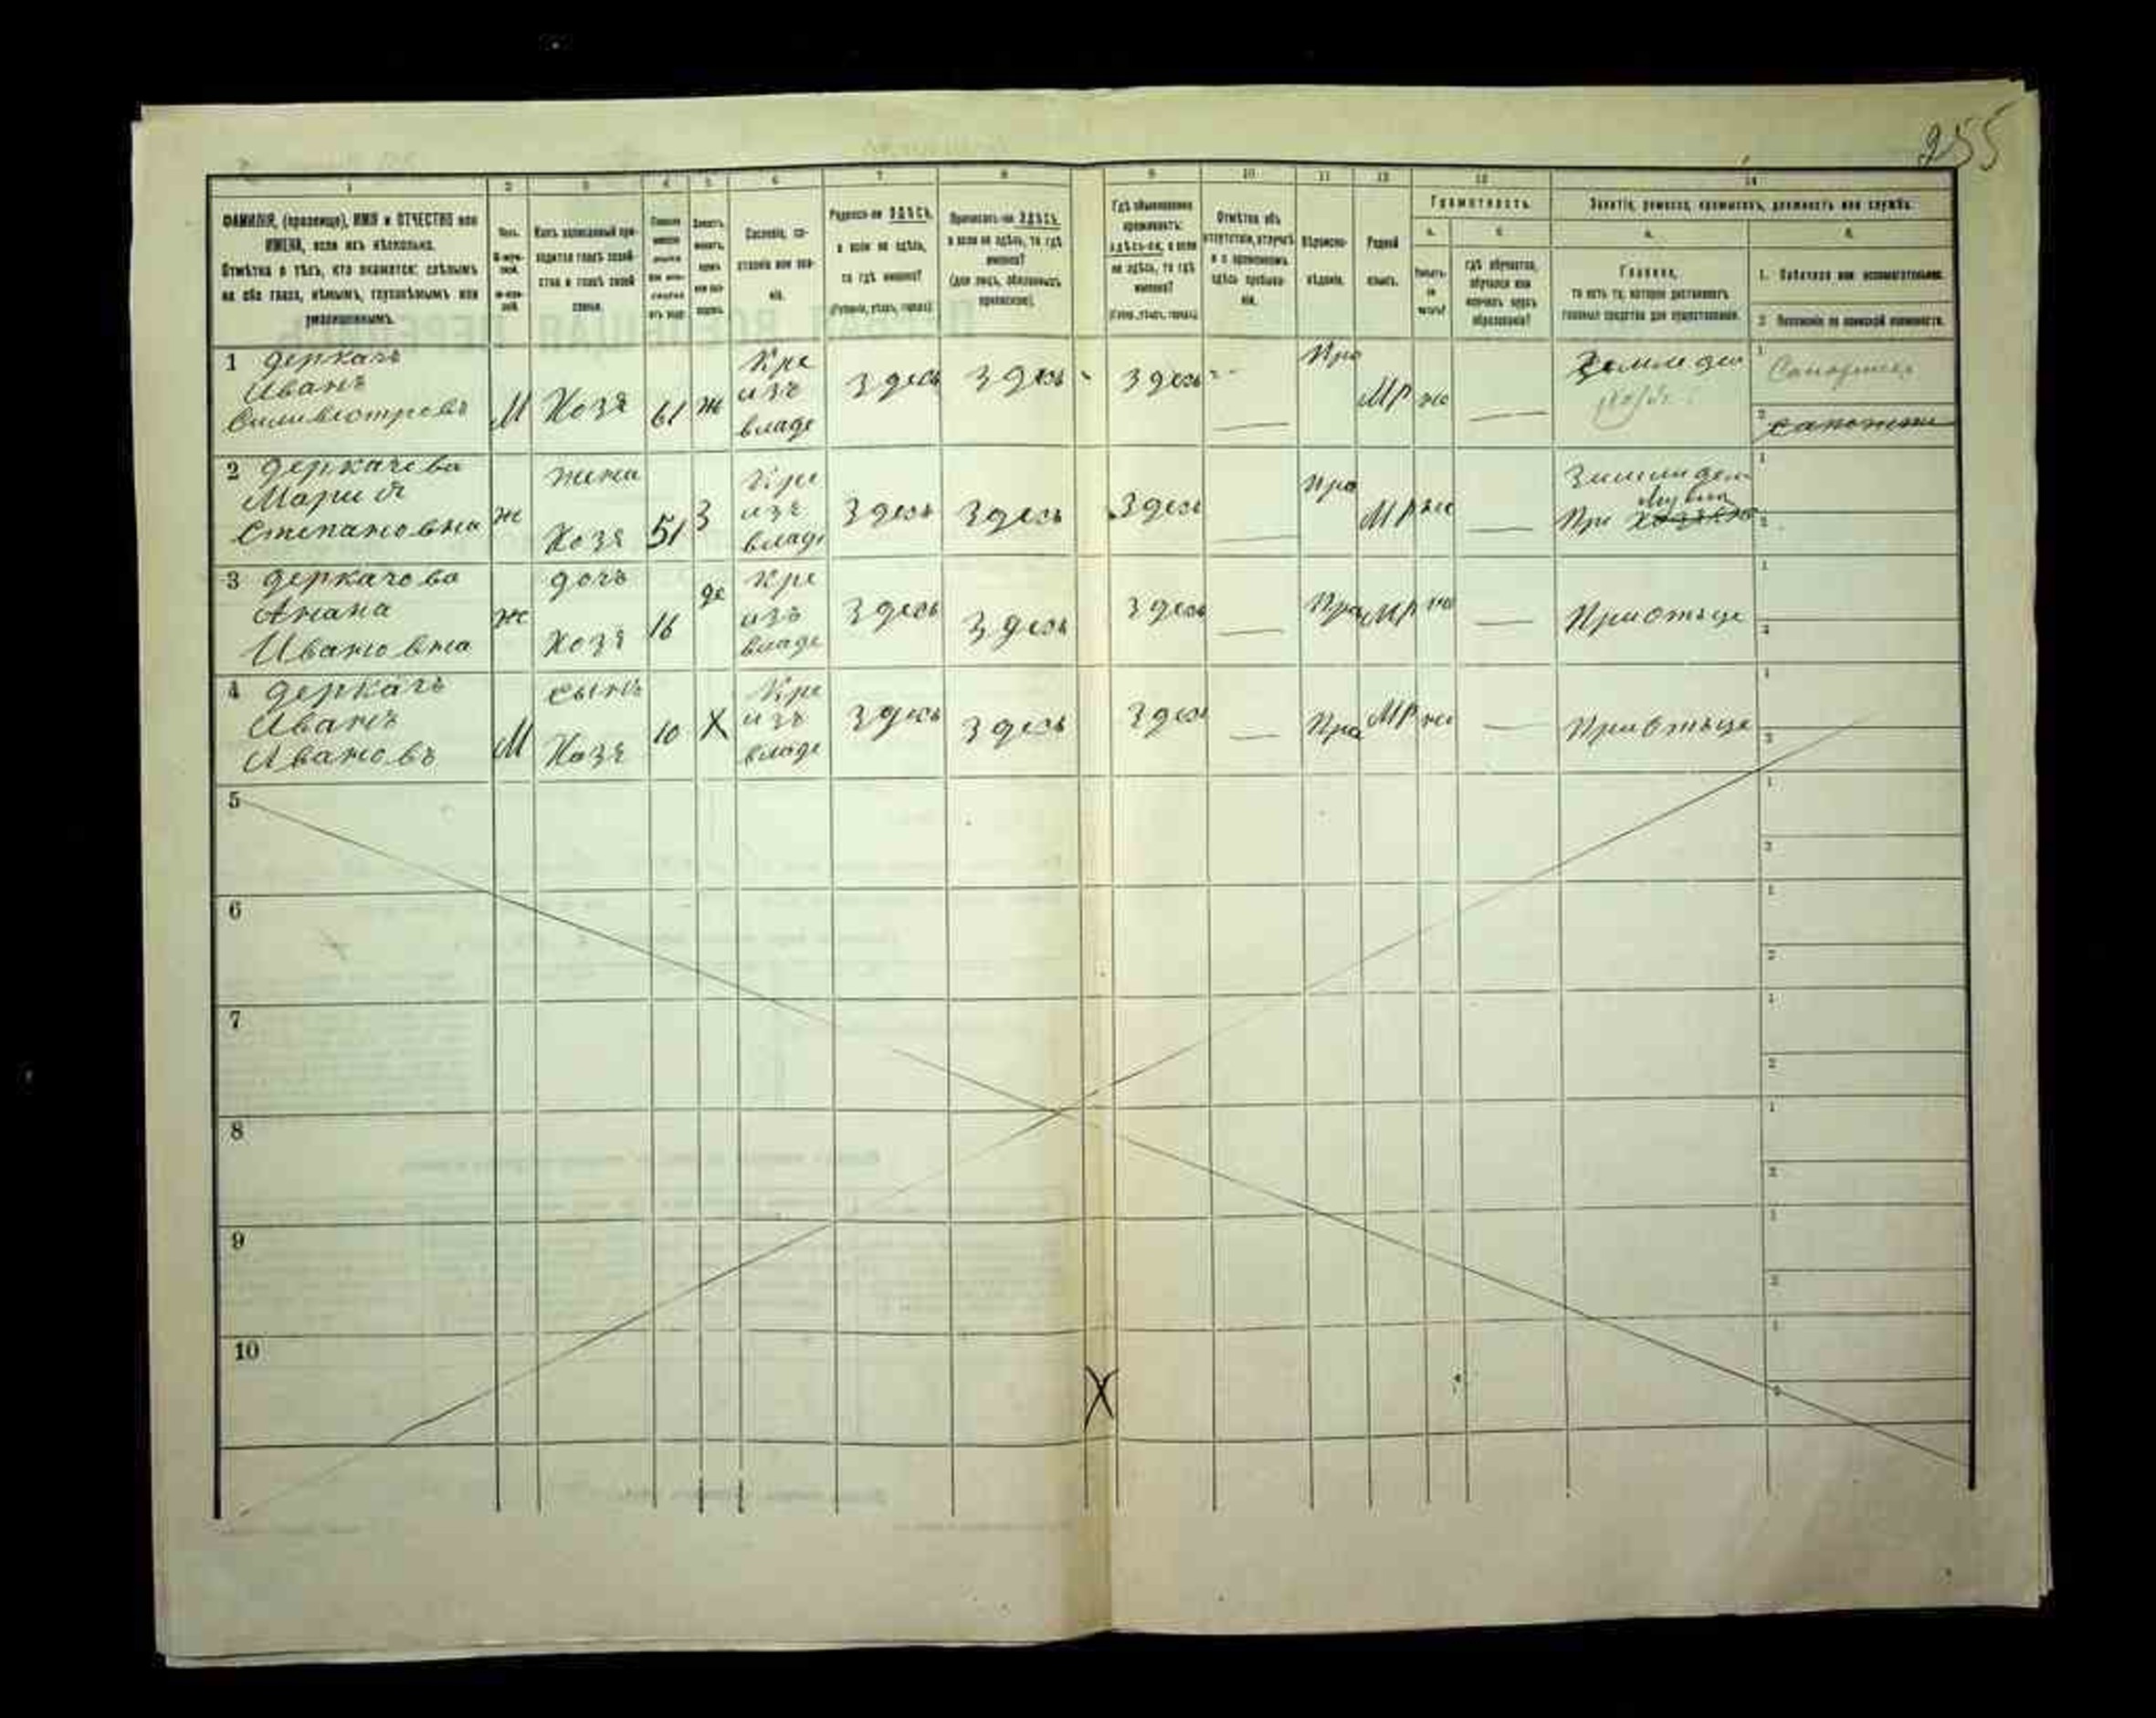 255
1 2 3 4 5 6 7 8 9 10 11 12 13 14
ФАМИЛІЯ, (прозвище), ИМЯ и ОТЧЕСТВО или
ИМЕНА, если ихъ нѣсколько.
Отмѣтка о тѣхъ, кто окажется: слѣпымъ
на оба глаза, нѣмымъ, глухонѣмымъ или
умалишеннымъ.
Полъ.
Какъ записанный при-
ходится главѣ хозяй-
ства и главѣ своей
семьи.
Сословіе, со-
стояніе или зва-
ніе.
Родился-ли ЗДѢСЬ,
а если не здѣсь,
то гдѣ именно?
(Губернія, уѣздъ, городъ).
Приписанъ-ли ЗДѢСЬ,
а если не здѣсь, то гдѣ
именно?
(для лицъ, обязанныхъ
припискою).
Гдѣ обыкновенно
проживаетъ:
здѣсь-ли, а если
не здѣсь, то гдѣ
именно?
(Губер., уѣздъ, городъ).
Отмѣтка объ
отсутствіи, отлучкѣ
и о временномъ
здѣсь пребыва-
ніи.
Вѣроиспо-
вѣданіе.
Родной
языкъ.
Грамотность.
а. б.
гдѣ обучается,
обучался или
кончилъ курсъ
образованія?
Занятіе, ремесло, промыселъ, должность или служба.
а. б.
Главное,
то есть то, которое доставляетъ
главныя средства для существованія.
1. Побочное или вспомогательное.
2. Положеніе по воинской повинности.
1 деркачъ
Иванъ
Силивестровъ
М Хозя 61 ж
Кре
изъ
владе
Здесь Здесь Здесь — Пра МР не —
Земледел
1
2 сапожни
2 деркачева
Мария
Степановна
ж
жена
Хозя
51 З
Кре
изъ
владе
Здесь Здесь Здесь — Пра МР не —
При
1
2
3 деркачова
Анана
Ивановна
ж
дочь
Хозя
16 де
Кре
изъ
владе
Здесь Здесь Здесь — Пра МР не — При отъце
1
2
4 деркачъ
Иванъ
Ивановъ
М
сынъ
Хозя
10 Х
Кре
изъ
владе
Здесь Здесь Здесь — Пра МР не — При отъце
1
2
5
1
2
6
1
2
7
1
2
8
1
2
9
1
2
10
1
2
X